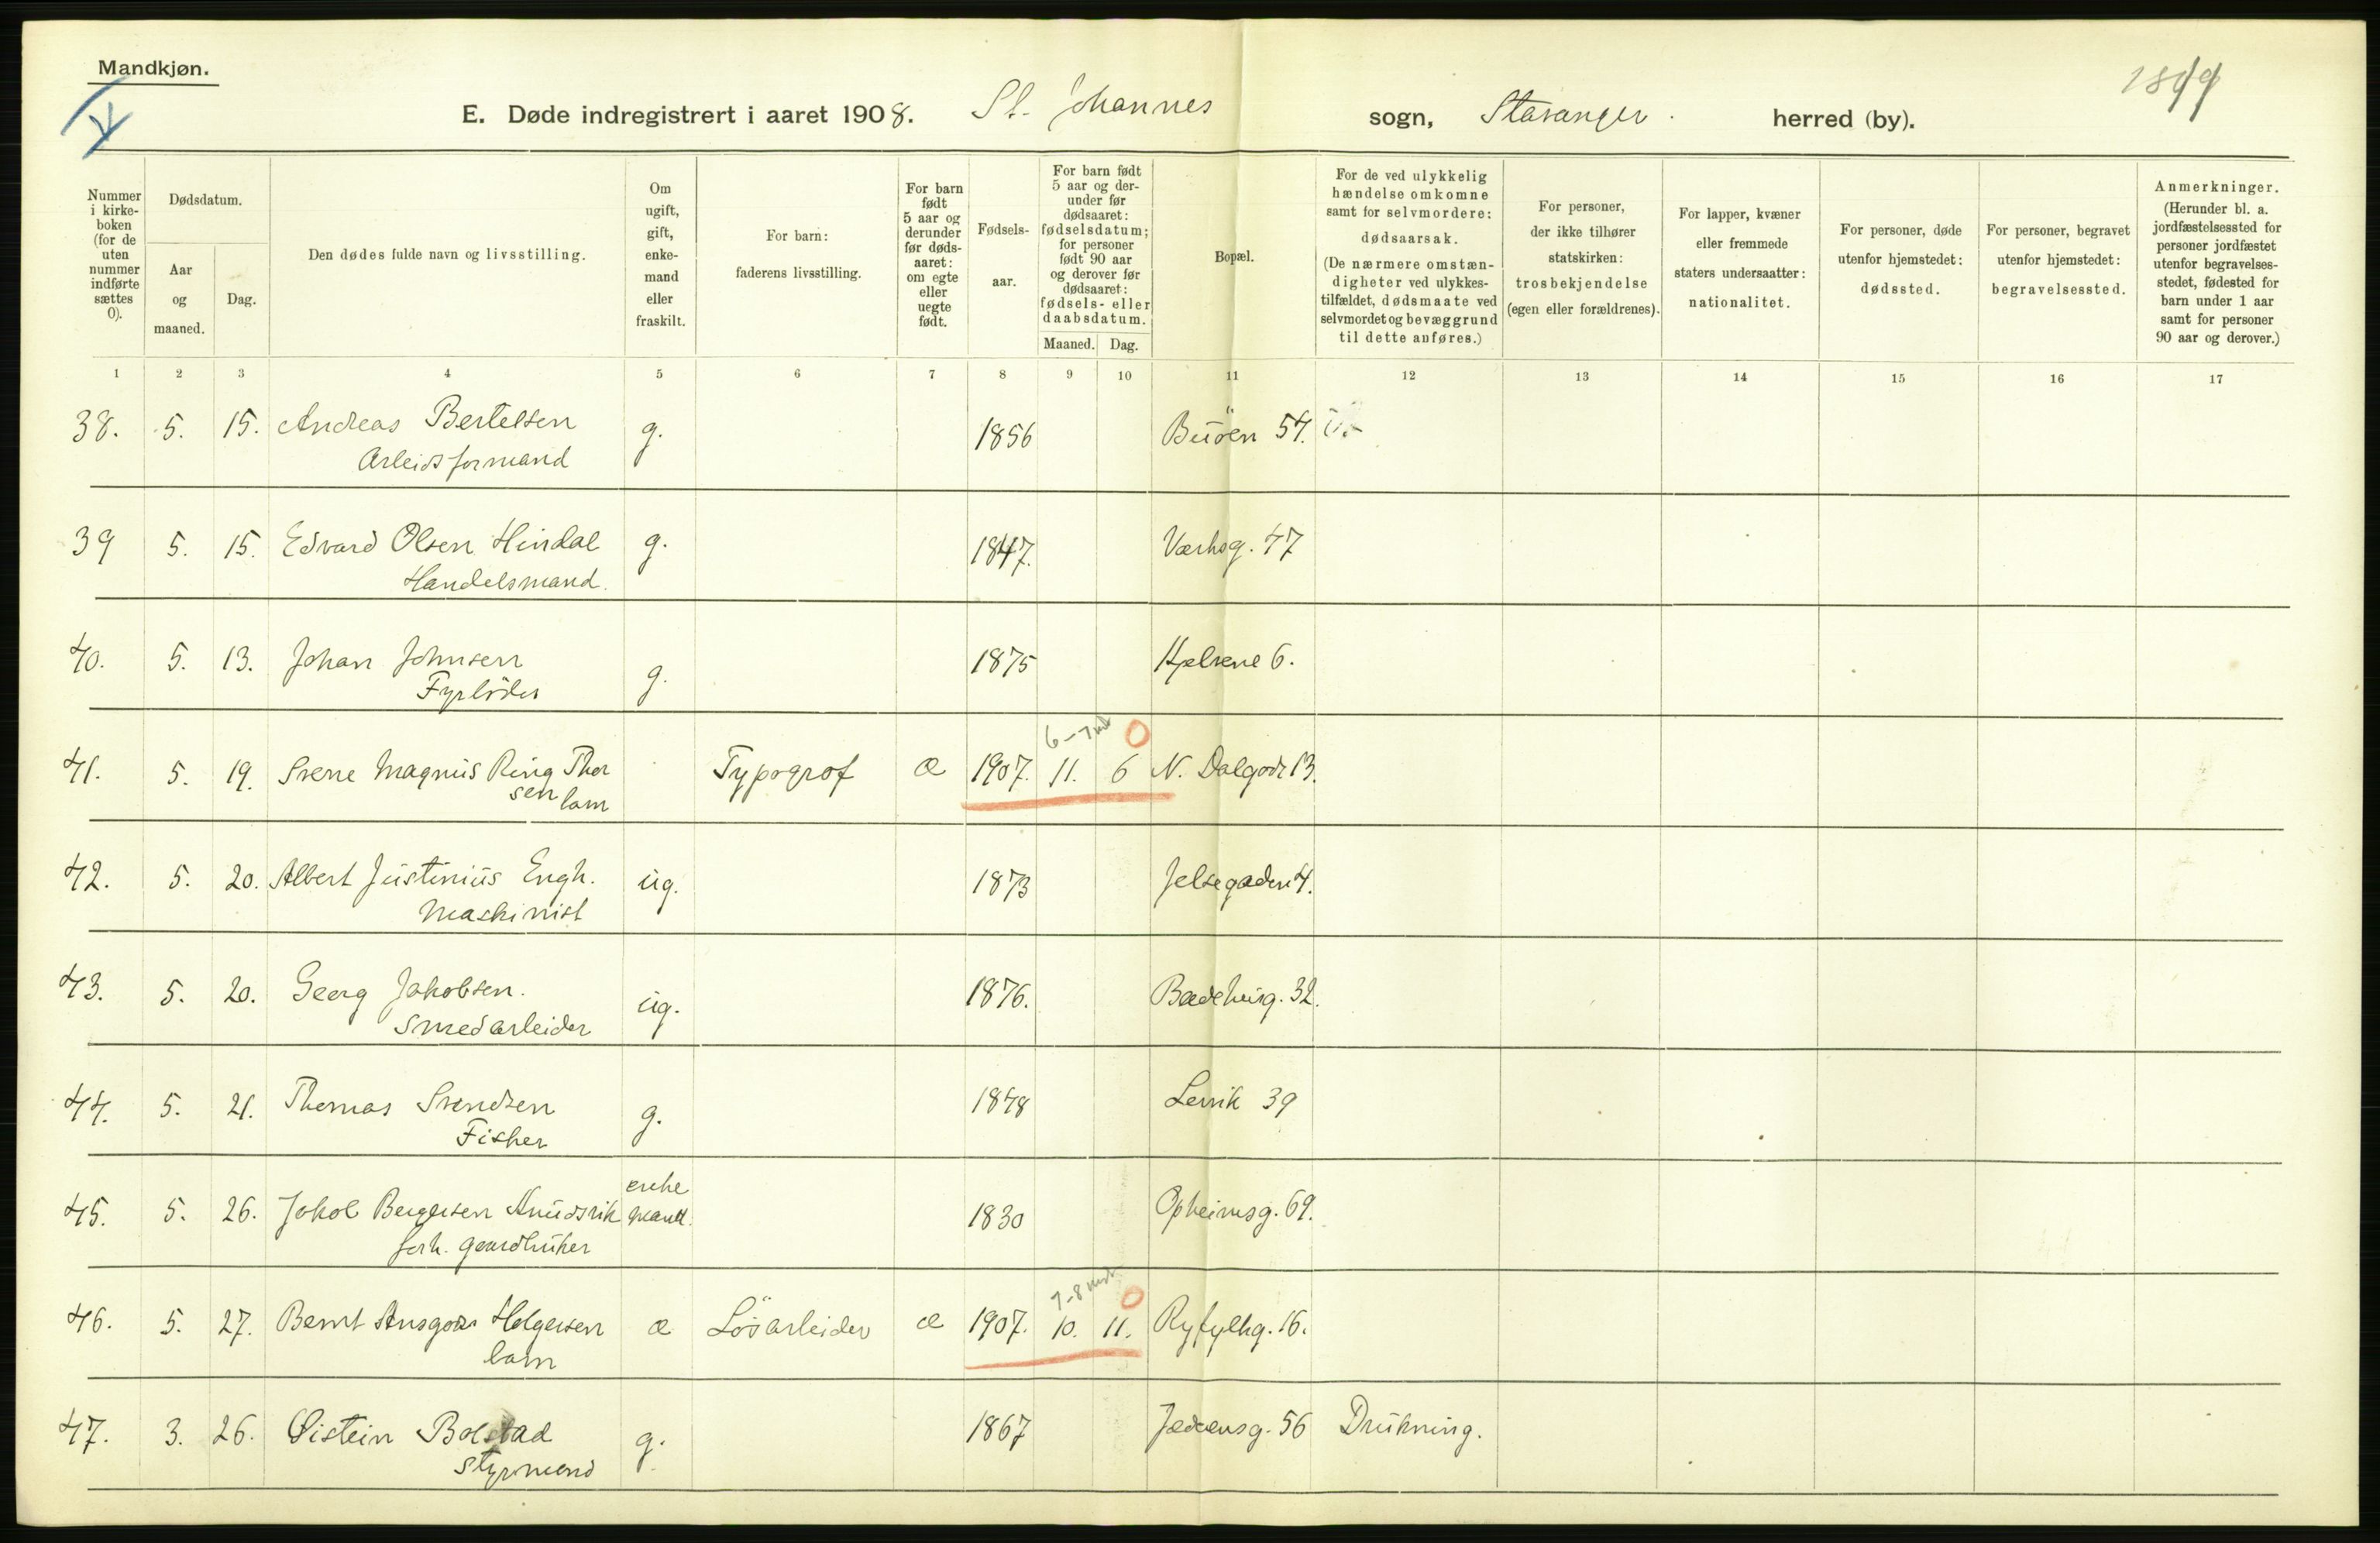 Mandkjøn.
E. Døde indregistrert i aaret 1908. St. Johannes sogn, Stavanger. herred (by).
Nummer i kirke-boken (for de uten nummer indførte sættes 0).
Dødsdatum.
Aar og maaned.
Dag.
Den dødes fulde navn og livsstilling.
Om ugift, gift, enke-mand eller fraskilt.
For barn: faderens livsstilling.
For barn født 5 aar og derunder før døds-aaret: om egte eller uegte født.
Fødsels-aar.
For barn født 5 aar og der-under før dødsaaret: fødselsdatum; for personer født 90 aar og derover før dødsaaret: fødsels- eller daabsdatum.
Maaned. Dag.
Bopæl.
For de ved ulykkelig hændelse omkomne samt for selvmordere: dødsaarsak. (De nærmere omstæn-digheter ved ulykkes-tilfældet, dødsmaate ved selvmordet og bevæggrund til dette anføres.)
For personer, der ikke tilhører statskirken: trosbekjendelse (egen eller forældrenes).
For lapper, kvæner eller fremmede staters undersaatter: nationalitet.
For personer, døde utenfor hjemstedet: dødssted.
For personer, begravet utenfor hjemstedet: begravelsessted.
Anmerkninger. (Herunder bl. a. jordfæstelsessted for personer jordfæstet utenfor begravelses-stedet, fødested for barn under 1 aar samt for personer 90 aar og derover.)
1 2 3 4 5 6 7 8 9 10 11 12 13 14 15 16 17
38. 5. 15. Andreas Bertelsen g. 1856 Buöen 54.
Arbeidsformand
39 5. 15. Edvard Olsen Hindal g. 1847. Verksg. 47
Handelsmand.
40. 5. 13. Johan Johnsen g. 1875 Hjelvene 6.
Fyrböder
6-7 md 0
41. 5. 19. Sverre Magnus Ring Thor Typograf æ 1907. 11. 6 N. Dalgade 13.
sen barn
42. 5. 20. Albert Justinius Engh. ug. 1873 Jelsegaden 4.
Maskinist
43. 5. 20. Georg Jakobsen. ug. 1876. Badehusg. 32.
Smedarbeider
44. 5. 21. Thomas Svendsen g. 1848 Lervik 39
Fisker
45. 5. 26. Jakob Bergersen Knudsvik enke mand. 1830 Opheimsg. 69.
forh. gaardbruker
7-8 md 0
46. 5. 27. Bernt Ansgar Holgersen æ Lösarbeider æ 1907. 10. 11. Ryfylkg. 16.
barn
47. 3. 26. Øistein Bolstad g. 1867 Jæderensg. 56 Drukning.
Styrmand